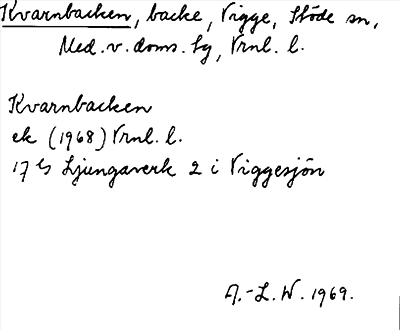 Kvarnbacken, backe, Vigge, Stöde sn,
Med. v. doms. sg, Vrnl. l.
Kvarnbacken
ek (1968) Vrnl. l.
17 G Ljungaverk 2 i Viggesjön
A.-L. W. 1969.